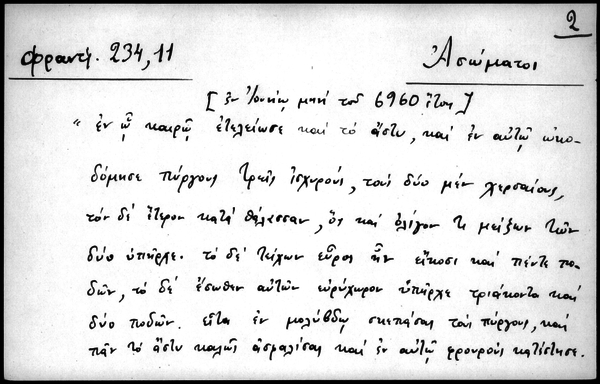 2
Φραντζ. 234,11
Ἀσώματοι
[ἐν Ἰουνίῳ μηνὶ τοῦ 6960 ἔτους]
"ἐν ᾧ καιρῷ ἐτελείωσε καὶ τὸ ἄστυ, καὶ ἐν αὐτῷ ᾠκο-
δόμησε πύργους τρεῖς ἰσχυρούς, τοὺς δύο μὲν χερσαίους,
τὸν δὲ ἕτερον κατὰ θάλασσαν, ὃς καὶ ὀλίγον τι μείζων τῶν
δύο ὑπῆρχε. τὸ δὲ τείχων εὖρος ἦν εἴκοσι καὶ πέντε πο-
δῶν, τὸ δὲ ἔσωθεν αὐτῶν εὐρύχωρον ὑπῆρχε τριάκοντα καὶ
δύο ποδῶν. εἶτα ἐν μολύβδῳ σκεπάσας τοὺς πύργους, καὶ
πᾶν τὸ ἄστυ καλῶς ἀσφαλίσας καὶ ἐν αὐτῷ φρουροὺς κατέστησε.